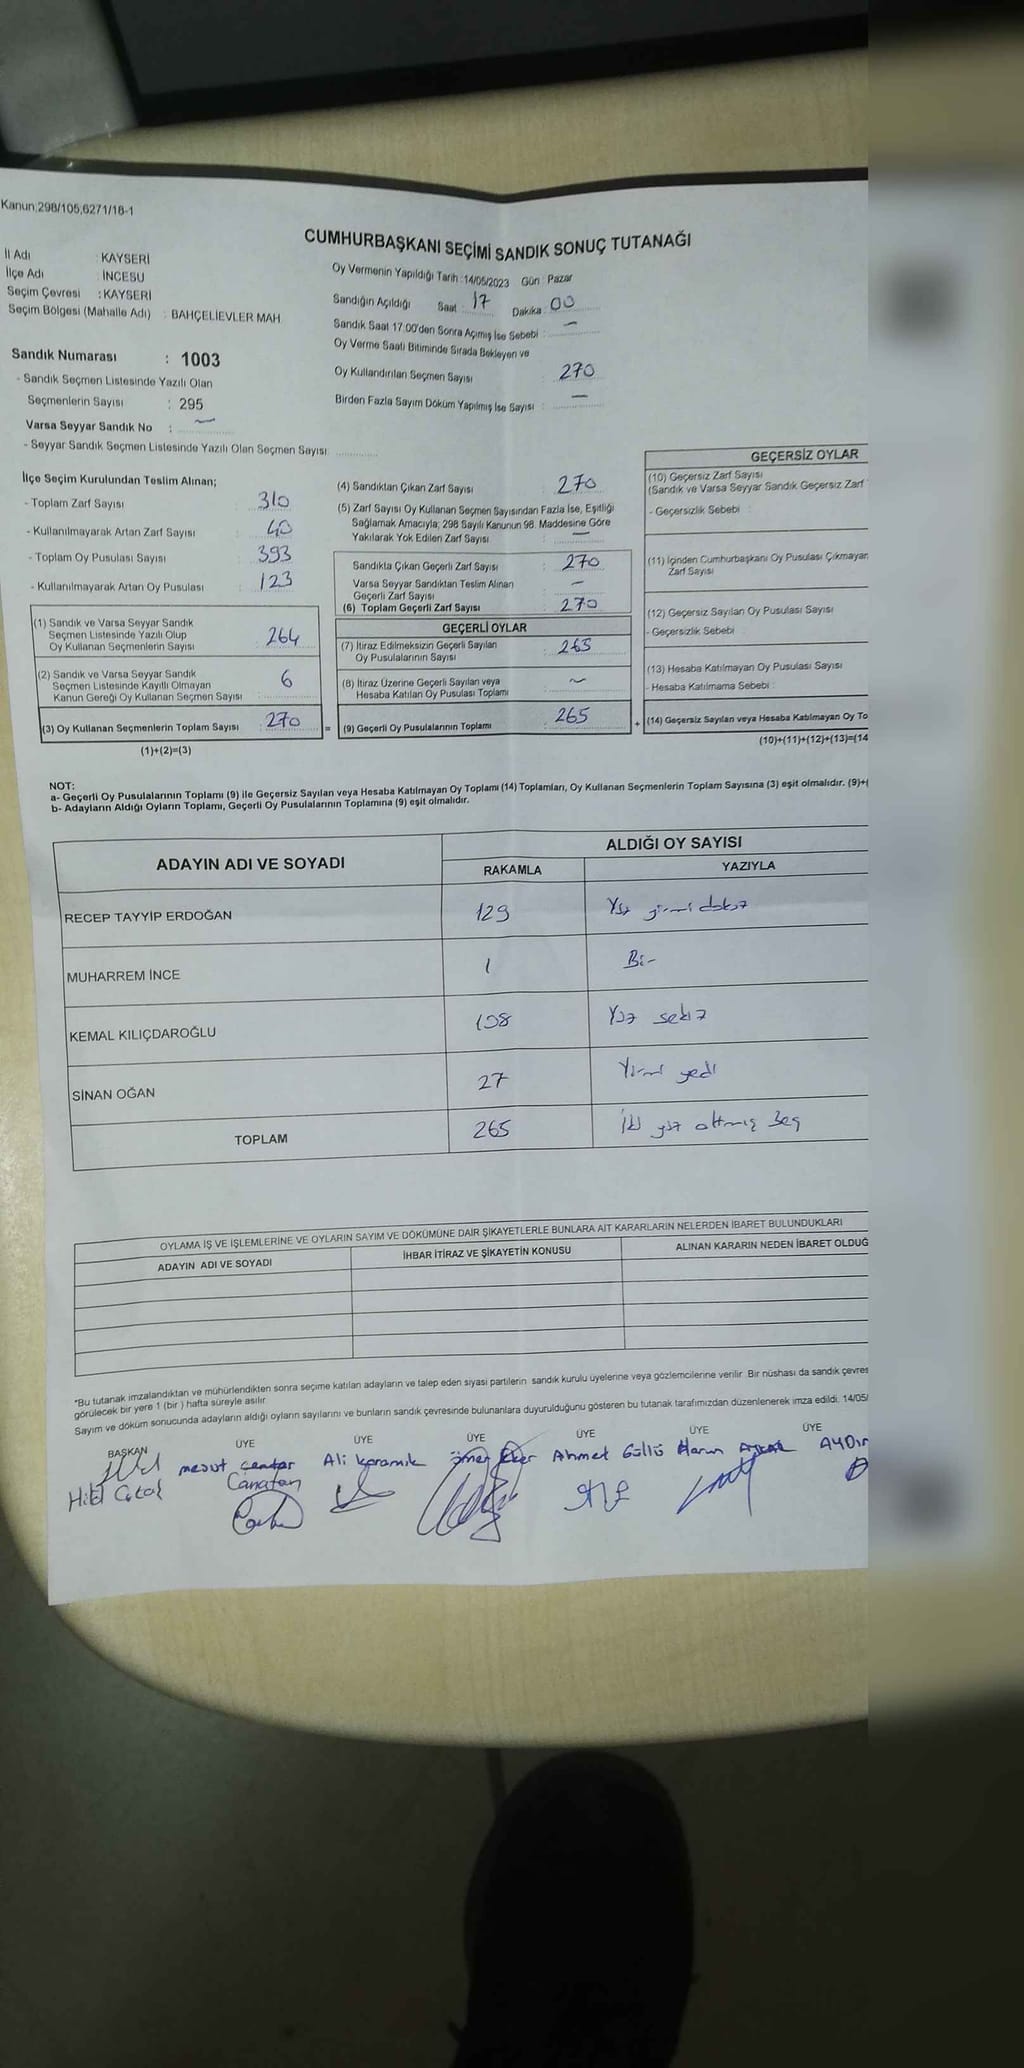 Kanun;298/105,6271/18-1
CUMHURBAŞKANI SEÇİMİ SANDIK SONUÇ TUTANAĞI
İl Adı : KAYSERİ
İlçe Adı : İNCESU
Seçim Çevresi : KAYSERİ
Seçim Bölgesi (Mahalle Adı) : BAHÇELİEVLER MAH
Sandık Numarası : 1003
- Sandık Seçmen Listesinde Yazılı Olan
Seçmenlerin Sayısı : 295
Varsa Seyyar Sandık No : –
- Seyyar Sandık Seçmen Listesinde Yazılı Olan Seçmen Sayısı:
Oy Vermenin Yapıldığı Tarih :14/05/2023 Gün : Pazar
Sandığın Açıldığı Saat : 17 Dakika : 00
Sandık Saat 17:00'den Sonra Açımış İse Sebebi : –
Oy Verme Saati Bitiminde Sırada Bekleyen ve
Oy Kullandırılan Seçmen Sayısı : 270
Birden Fazla Sayım Döküm Yapılmış İse Sayısı : –
İlçe Seçim Kurulundan Teslim Alınan;
- Toplam Zarf Sayısı : 310
- Kullanılmayarak Artan Zarf Sayısı : 40
- Toplam Oy Pusulası Sayısı : 393
- Kullanılmayarak Artan Oy Pusulası : 123
(1) Sandık ve Varsa Seyyar Sandık
Seçmen Listesinde Yazılı Olup
Oy Kullanan Seçmenlerin Sayısı : 264
(2) Sandık ve Varsa Seyyar Sandık
Seçmen Listesinde Kayıtlı Olmayan
Kanun Gereği Oy Kullanan Seçmen Sayısı : 6
(3) Oy Kullanan Seçmenlerin Toplam Sayısı : 270 =
(1)+(2)=(3)
(4) Sandıktan Çıkan Zarf Sayısı : 270
(5) Zarf Sayısı Oy Kullanan Seçmen Sayısından Fazla İse, Eşitliği
Sağlamak Amacıyla; 298 Sayılı Kanunun 98. Maddesine Göre
Yakılarak Yok Edilen Zarf Sayısı : –
Sandıkta Çıkan Geçerli Zarf Sayısı : 270
Varsa Seyyar Sandıktan Teslim Alınan
Geçerli Zarf Sayısı : –
(6) Toplam Geçerli Zarf Sayısı : 270
GEÇERLİ OYLAR
(7) İtiraz Edilmeksizin Geçerli Sayılan
Oy Pusulalarının Sayısı : 265
(8) İtiraz Üzerine Geçerli Sayılan veya
Hesaba Katılan Oy Pusulası Toplamı : –
(9) Geçerli Oy Pusulalarının Toplamı : 265 +
GEÇERSİZ OYLAR
(10) Geçersiz Zarf Sayısı
(Sandık ve Varsa Seyyar Sandık Geçersiz Zarf
- Geçersizlik Sebebi :
(11) İçinden Cumhurbaşkanı Oy Pusulası Çıkmayan
Zarf Sayısı
(12) Geçersiz Sayılan Oy Pusulası Sayısı
- Geçersizlik Sebebi :
(13) Hesaba Katılmayan Oy Pusulası Sayısı
- Hesaba Katılmama Sebebi :
(14) Geçersiz Sayılan veya Hesaba Katılmayan Oy To
(10)+(11)+(12)+(13)=(14
NOT:
a- Geçerli Oy Pusulalarının Toplamı (9) ile Geçersiz Sayılan veya Hesaba Katılmayan Oy Toplamı (14) Toplamları, Oy Kullanan Seçmenlerin Toplam Sayısına (3) eşit olmalıdır. (9)+(
b- Adayların Aldığı Oyların Toplamı, Geçerli Oy Pusulalarının Toplamına (9) eşit olmalıdır.
ADAYIN ADI VE SOYADI
ALDIĞI OY SAYISI
RAKAMLA YAZIYLA
RECEP TAYYİP ERDOĞAN 129 Yüz yirmi dokuz
MUHARREM İNCE 1 Bir
KEMAL KILIÇDAROĞLU 108 Yüz sekiz
SİNAN OĞAN 27 Yirmi yedi
TOPLAM 265 İki yüz altmış beş
OYLAMA İŞ VE İŞLEMLERİNE VE OYLARIN SAYIM VE DÖKÜMÜNE DAİR ŞİKAYETLERLE BUNLARA AİT KARARLARIN NELERDEN İBARET BULUNDUKLARI
ADAYIN ADI VE SOYADI İHBAR İTİRAZ VE ŞİKAYETİN KONUSU ALINAN KARARIN NEDEN İBARET OLDUĞ
*Bu tutanak imzalandıktan ve mühürlendikten sonra seçime katılan adayların ve talep eden siyasi partilerin sandık kurulu üyelerine veya gözlemcilerine verilir. Bir nüshası da sandık çevres
görülecek bir yere 1 (bir ) hafta süreyle asılır.
Sayım ve döküm sonucunda adayların aldığı oyların sayılarını ve bunların sandık çevresinde bulunanlara duyurulduğunu gösteren bu tutanak tarafımızdan düzenlenerek imza edildi. 14/05/
BAŞKAN ÜYE ÜYE ÜYE ÜYE ÜYE ÜYE
mesut Ali Karamık Ömer Ahmet Güllü Harun AYDIN
Canatan